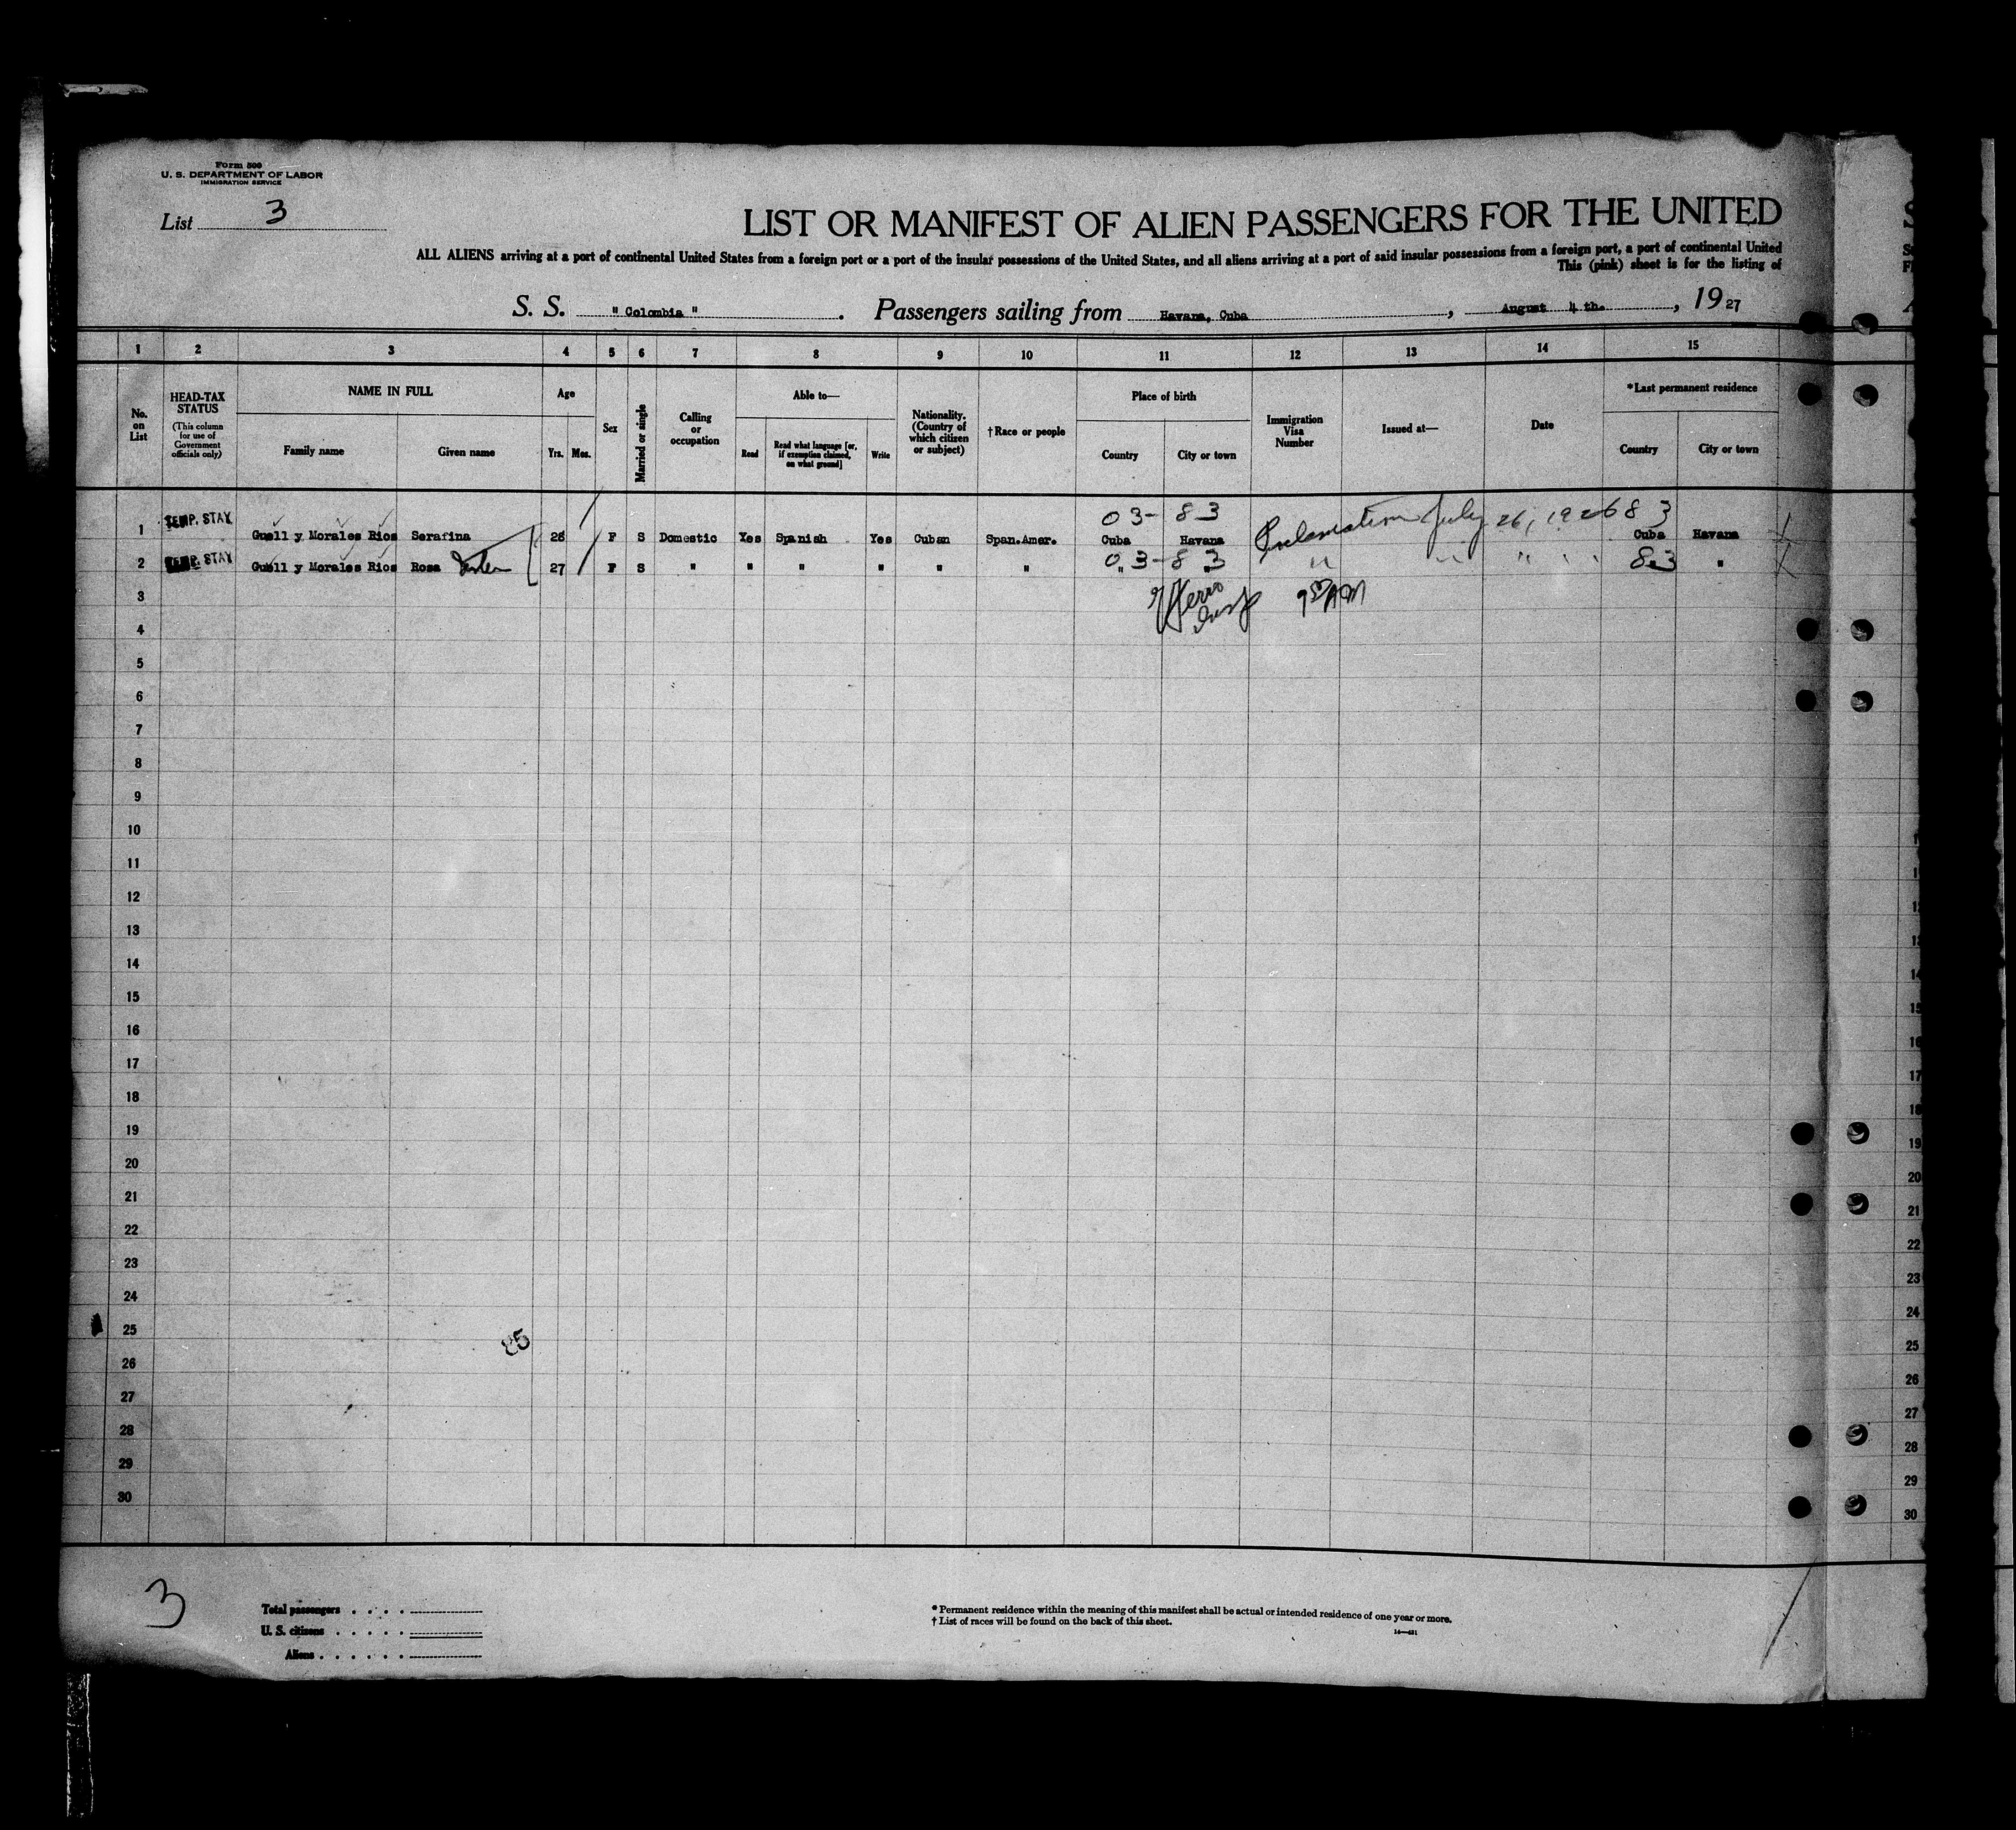 Form 500
U. S. DEPARTMENT OF LABOR
IMMIGRATION SERVICE
List 3
LIST OR MANIFEST OF ALIEN PASSENGERS FOR THE UNITED
ALL ALIENS arriving at a port of continental United States from a foreign port or a port of the insular possessions of the United States, and all aliens arriving at a port of said insular possessions from a foreign port, a port of continental United
This (pink) sheet is for the listing of
S. S. " Colombia " . Passengers sailing from Havana, Cuba , August 4 th. , 19 27
1 2 3 4 5 6 7 8 9 10 11 12 13 14 15
No. on List
HEAD-TAX STATUS
(This column for use of Government officials only)
NAME IN FULL
Family name Given name
Age
Yrs. Mos.
Sex
Married or single
Calling or occupation
Able to—
Read
Read what language [or, if exemption claimed, on what ground]
Write
Nationality. (Country of which citizen or subject)
†Race or people
Place of birth
Country City or town
Immigration Visa Number
Issued at—
Date
*Last permanent residence
Country City or town
03- 83 Proclamation July 26, 1926 83
1 TEMP. STAY Guell y Morales Rios Serafina 26 F S Domestic Yes Spanish Yes Cuban Span.Amer. Cuba Havana Cuba Havana
03-83 " " " " 83
2 TEMP. STAY Guell y Morales Rios Rosa Sister 27 F S " " " " " " " " " "
3
4
5
6
7
8
9
10
11
12
13
14
15
16
17
18
19
20
21
22
23
24
25
85
26
27
28
29
30
19
20
21
22
23
24
25
26
27
28
29
30
3
Total passengers . . . .
U. S. citizens . . . . .
Aliens . . . . . .
* Permanent residence within the meaning of this manifest shall be actual or intended residence of one year or more.
† List of races will be found on the back of this sheet.
14—431